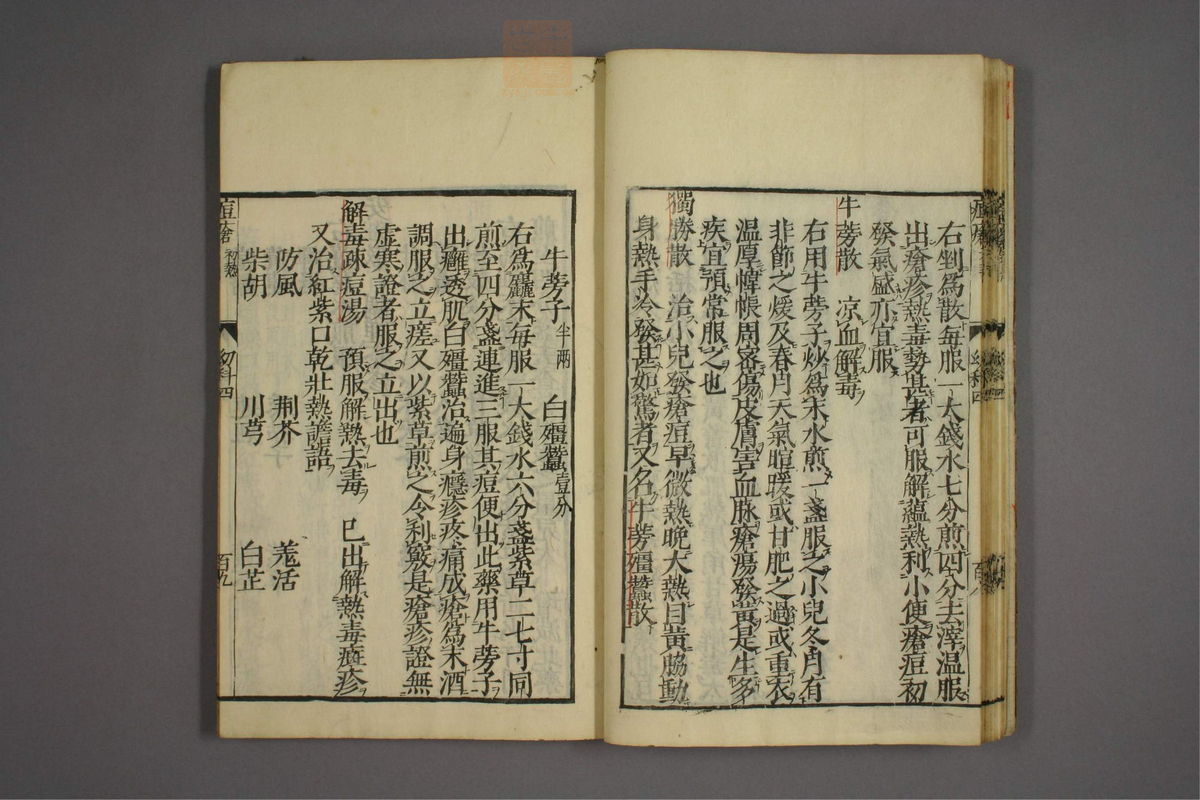 右剉爲散每服一大錢水七分煎四分去滓溫服
出瘡疹熱毒勢甚者可服解蘊熱利小便瘡痘初
發氣盛亦宜服
牛蒡散 凉血解毒
右用牛蒡子炒爲末水煎一盞服之小兒冬月有
非節之煖及春月天氣暄暖或甘肥之過或重衣
溫厚幃帳周密傷皮膚害血脉瘡瘍發黃是生多
疾宜預常服之也
獨勝散 治小兒發瘡痘早微熱晩大熱目黃脇動
身熱手冷發甚如驚者又名牛蒡殭蠶散
牛蒡子半兩 白殭蠶壹分
右爲麤末每服一大錢水六分盞紫草二七寸同
煎至四分盞連進三服其痘便出此藥用牛蒡子
出癰透肌白殭蠶治遍身癮疹疼痛成瘡爲末酒
調服之立瘥又以紫草煎之令利竅是瘡疹證無
虛寒證者服之立出也
解毒疎痘湯 預服解熱去毒 已出解熱毒癍疹
又治紅紫口乾壯熱譫語
防風 荆芥 羗活
柴胡 川芎 白芷
痘瘡 初熱 幼科四 百九